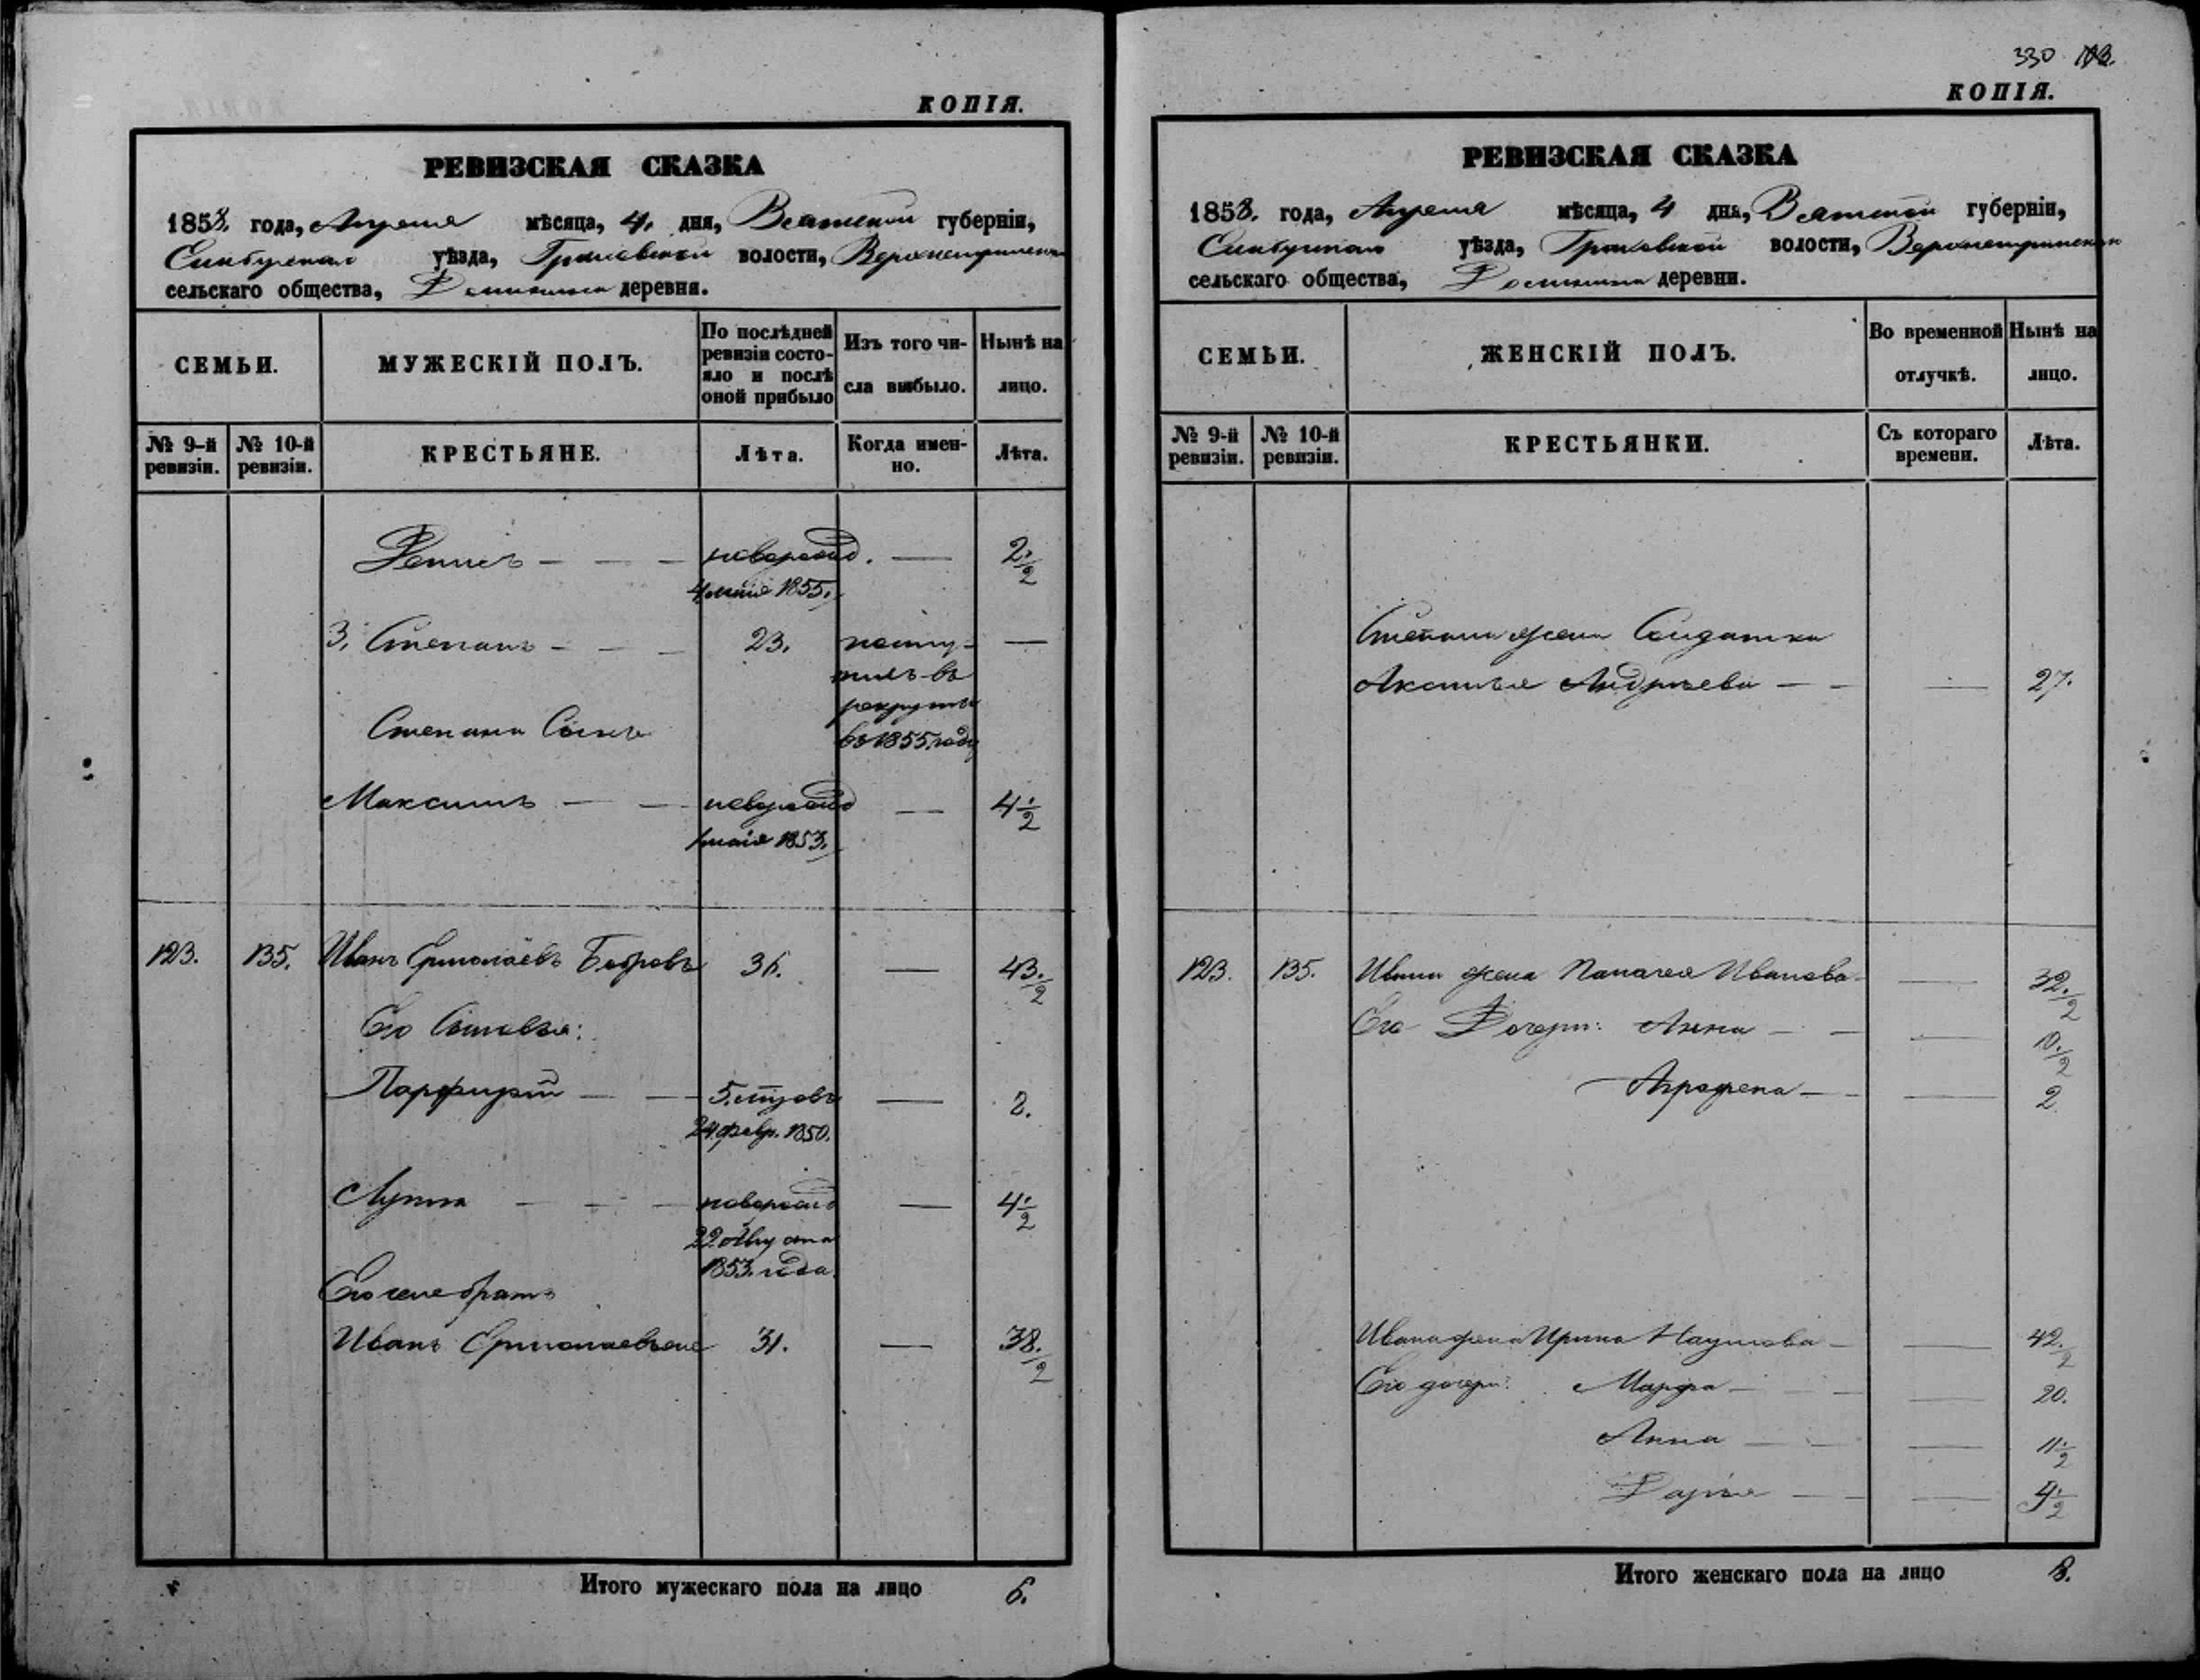 КОПІЯ.
РЕВИЗСКАЯ СКАЗКА
1858. года, Апреля мѣсяца, 4. дня, Вятской губерніи,
уѣзда, волости,
сельскаго общества, деревня.
СЕМЬИ.
МУЖЕСКІЙ ПОЛЪ.
По послѣдней ревизіи состо-
яло и послѣ оной прибыло
Изъ того чи-
сла выбыло.
Нынѣ на
лицо.
№ 9-й ревизіи.
№ 10-й ревизіи.
КРЕСТЬЯНЕ.
Лѣта.
Когда имен-
но.
Лѣта.
Денисъ — — — новорожд. — 2 1/2
4 мая 1855.
3. Степанъ — — — 23. посту- —
пилъ въ
рекруты
Степана Сынъ въ 1855 году
Максимъ — — новорожд — 4 1/2
1 мая 1853.
123. 135. Иванъ Ермолаевъ Бобровъ 36. — 43. 1/2
Его Сыновья:
Парфирій — — — 8.
24 февр. 1850.
Лупа — — — новорожд — 4 1/2
22 Августа
1853. года.
Его же братъ
Иванъ Ермолаевъ же 31. — 38. 1/2
Итого мужескаго пола на лицо 6.
330
КОПІЯ.
РЕВИЗСКАЯ СКАЗКА
1858. года, Апреля мѣсяца, 4 дня, Вятской губерніи,
уѣзда, волости,
сельскаго общества, деревни.
СЕМЬИ.
ЖЕНСКІЙ ПОЛЪ.
Во временной
отлучкѣ.
Нынѣ на
лицо.
№ 9-й ревизіи.
№ 10-й ревизіи.
КРЕСТЬЯНКИ.
Съ котораго
времени.
Лѣта.
Степана жена Солдатка
Аксинья Андреева — — — 27.
123. 135. Ивана жена Палагея Иванова — — 32. 1/2
Его Дочери: Анна — — — 10. 1/2
Аграфена — — — 2
Ивана жена Ирина Наумова — — 42. 1/2
Его дочери: Марфа — — — 20.
Анна — — — 11 1/2
Дарья — — — 4 1/2
Итого женскаго пола на лицо 8.